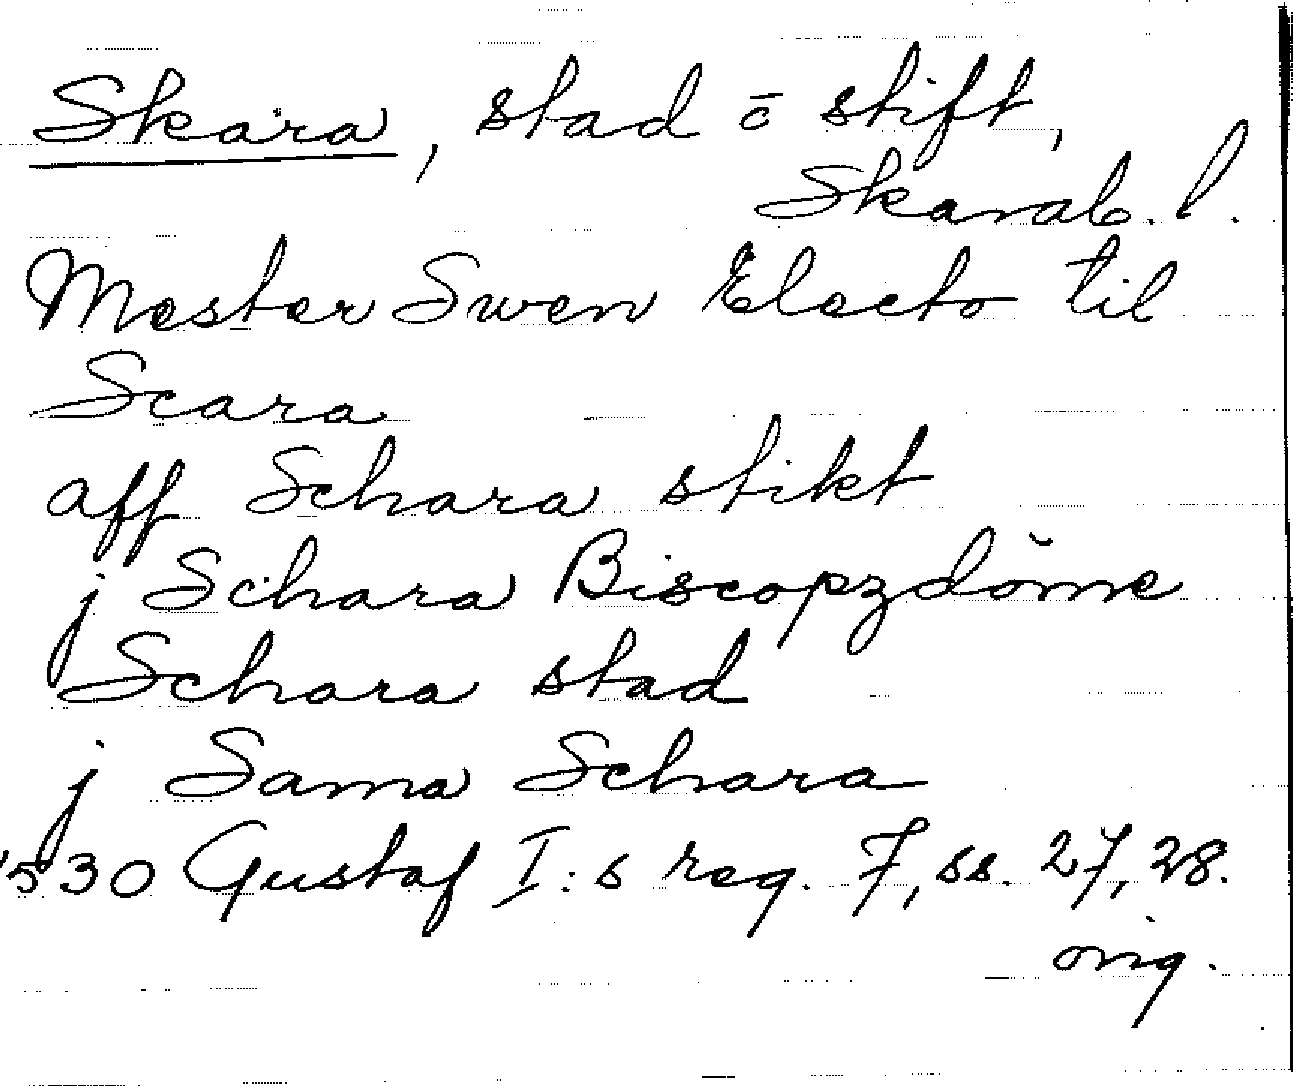 Skara, stad c̄ stift,
Skarab. l.
Mester Swen Electo til
Scara
aff Schara stikt
j Schara Biscopzdŏme
Schara stad
j Sama Schara
1530 Gustaf I:s reg. 7, ss. 27, 28.
orig.